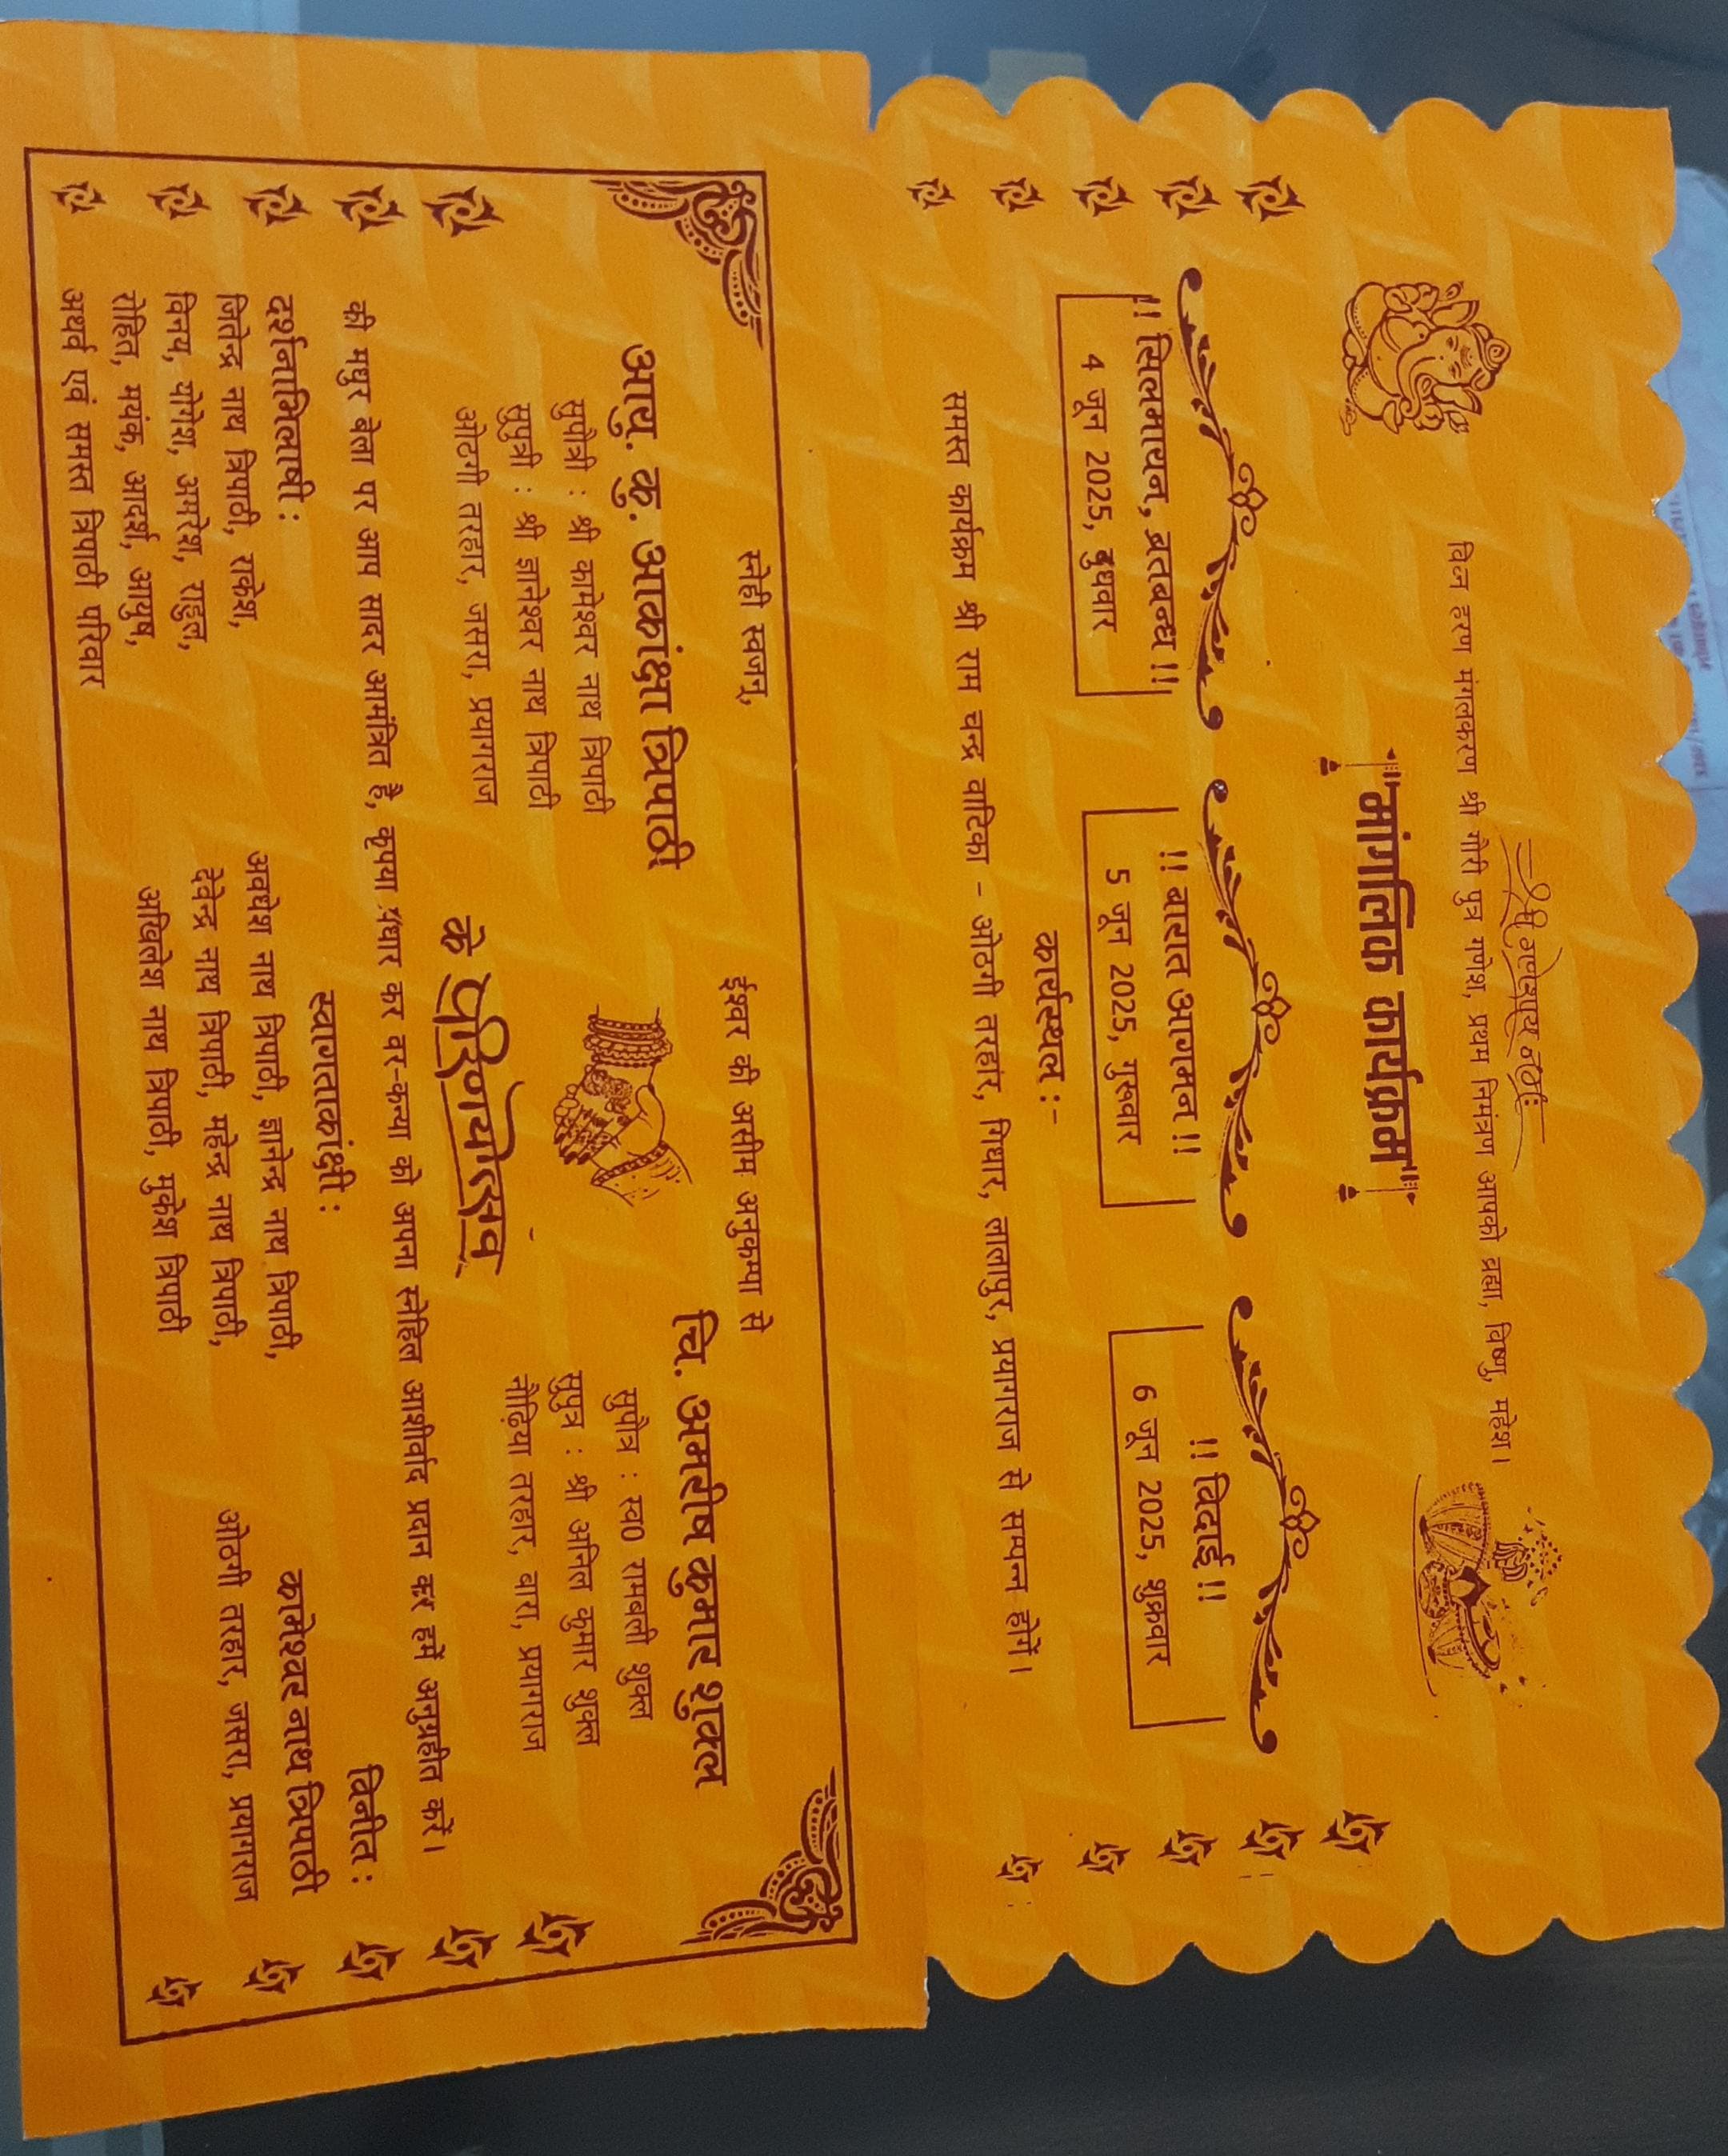 श्री गणेशाय नमः
विघ्न हरण मंगलकरण श्री गौरी पुत्र गणेश, प्रथम निमंत्रण आपको ब्रह्मा, विष्णु, महेश।
"मांगलिक कार्यक्रम"
!! सिलमायन, व्रतबन्ध !!
4 जून 2025, बुधवार
!! बारात आगमन !!
5 जून 2025, गुरुवार
!! विदाई !!
6 जून 2025, शुक्रवार
कार्यस्थल :-
समस्त कार्यक्रम श्री राम चन्द्र वाटिका - ओठगी तरहार, गिधार, लालापुर, प्रयागराज से सम्पन्न होगें।
स्नेही स्वजन,
ईश्वर की असीम अनुकम्पा से
आयु. कु. आकांक्षा त्रिपाठी
सुपौत्री : श्री कामेश्वर नाथ त्रिपाठी
सुपुत्री : श्री ज्ञानेश्वर नाथ त्रिपाठी
ओठगी तरहार, जसरा, प्रयागराज
चि. अमरीष कुमार शुक्ल
सुपौत्र : स्व0 रामबली शुक्ल
सुपुत्र : श्री अनिल कुमार शुक्ल
नौढ़िया तरहार, बारा, प्रयागराज
के परिणयोत्सव
की मधुर बेला पर आप सादर आमंत्रित हैं, कृपया पधार कर वर-कन्या को अपना स्नेहिल आशीर्वाद प्रदान कर हमें अनुग्रहीत करें।
दर्शनाभिलाषी :
जितेन्द्र नाथ त्रिपाठी, राकेश,
विनय, योगेश, अमरेश, राहुल,
रोहित, मयंक, आदर्श, आयुष,
अथर्व एवं समस्त त्रिपाठी परिवार
स्वागताकांक्षी :
अवधेश नाथ त्रिपाठी, ज्ञानेन्द्र नाथ त्रिपाठी,
देवेन्द्र नाथ त्रिपाठी, महेन्द्र नाथ त्रिपाठी,
अखिलेश नाथ त्रिपाठी, मुकेश त्रिपाठी
विनीत :
कामेश्वर नाथ त्रिपाठी
ओठगी तरहार, जसरा, प्रयागराज